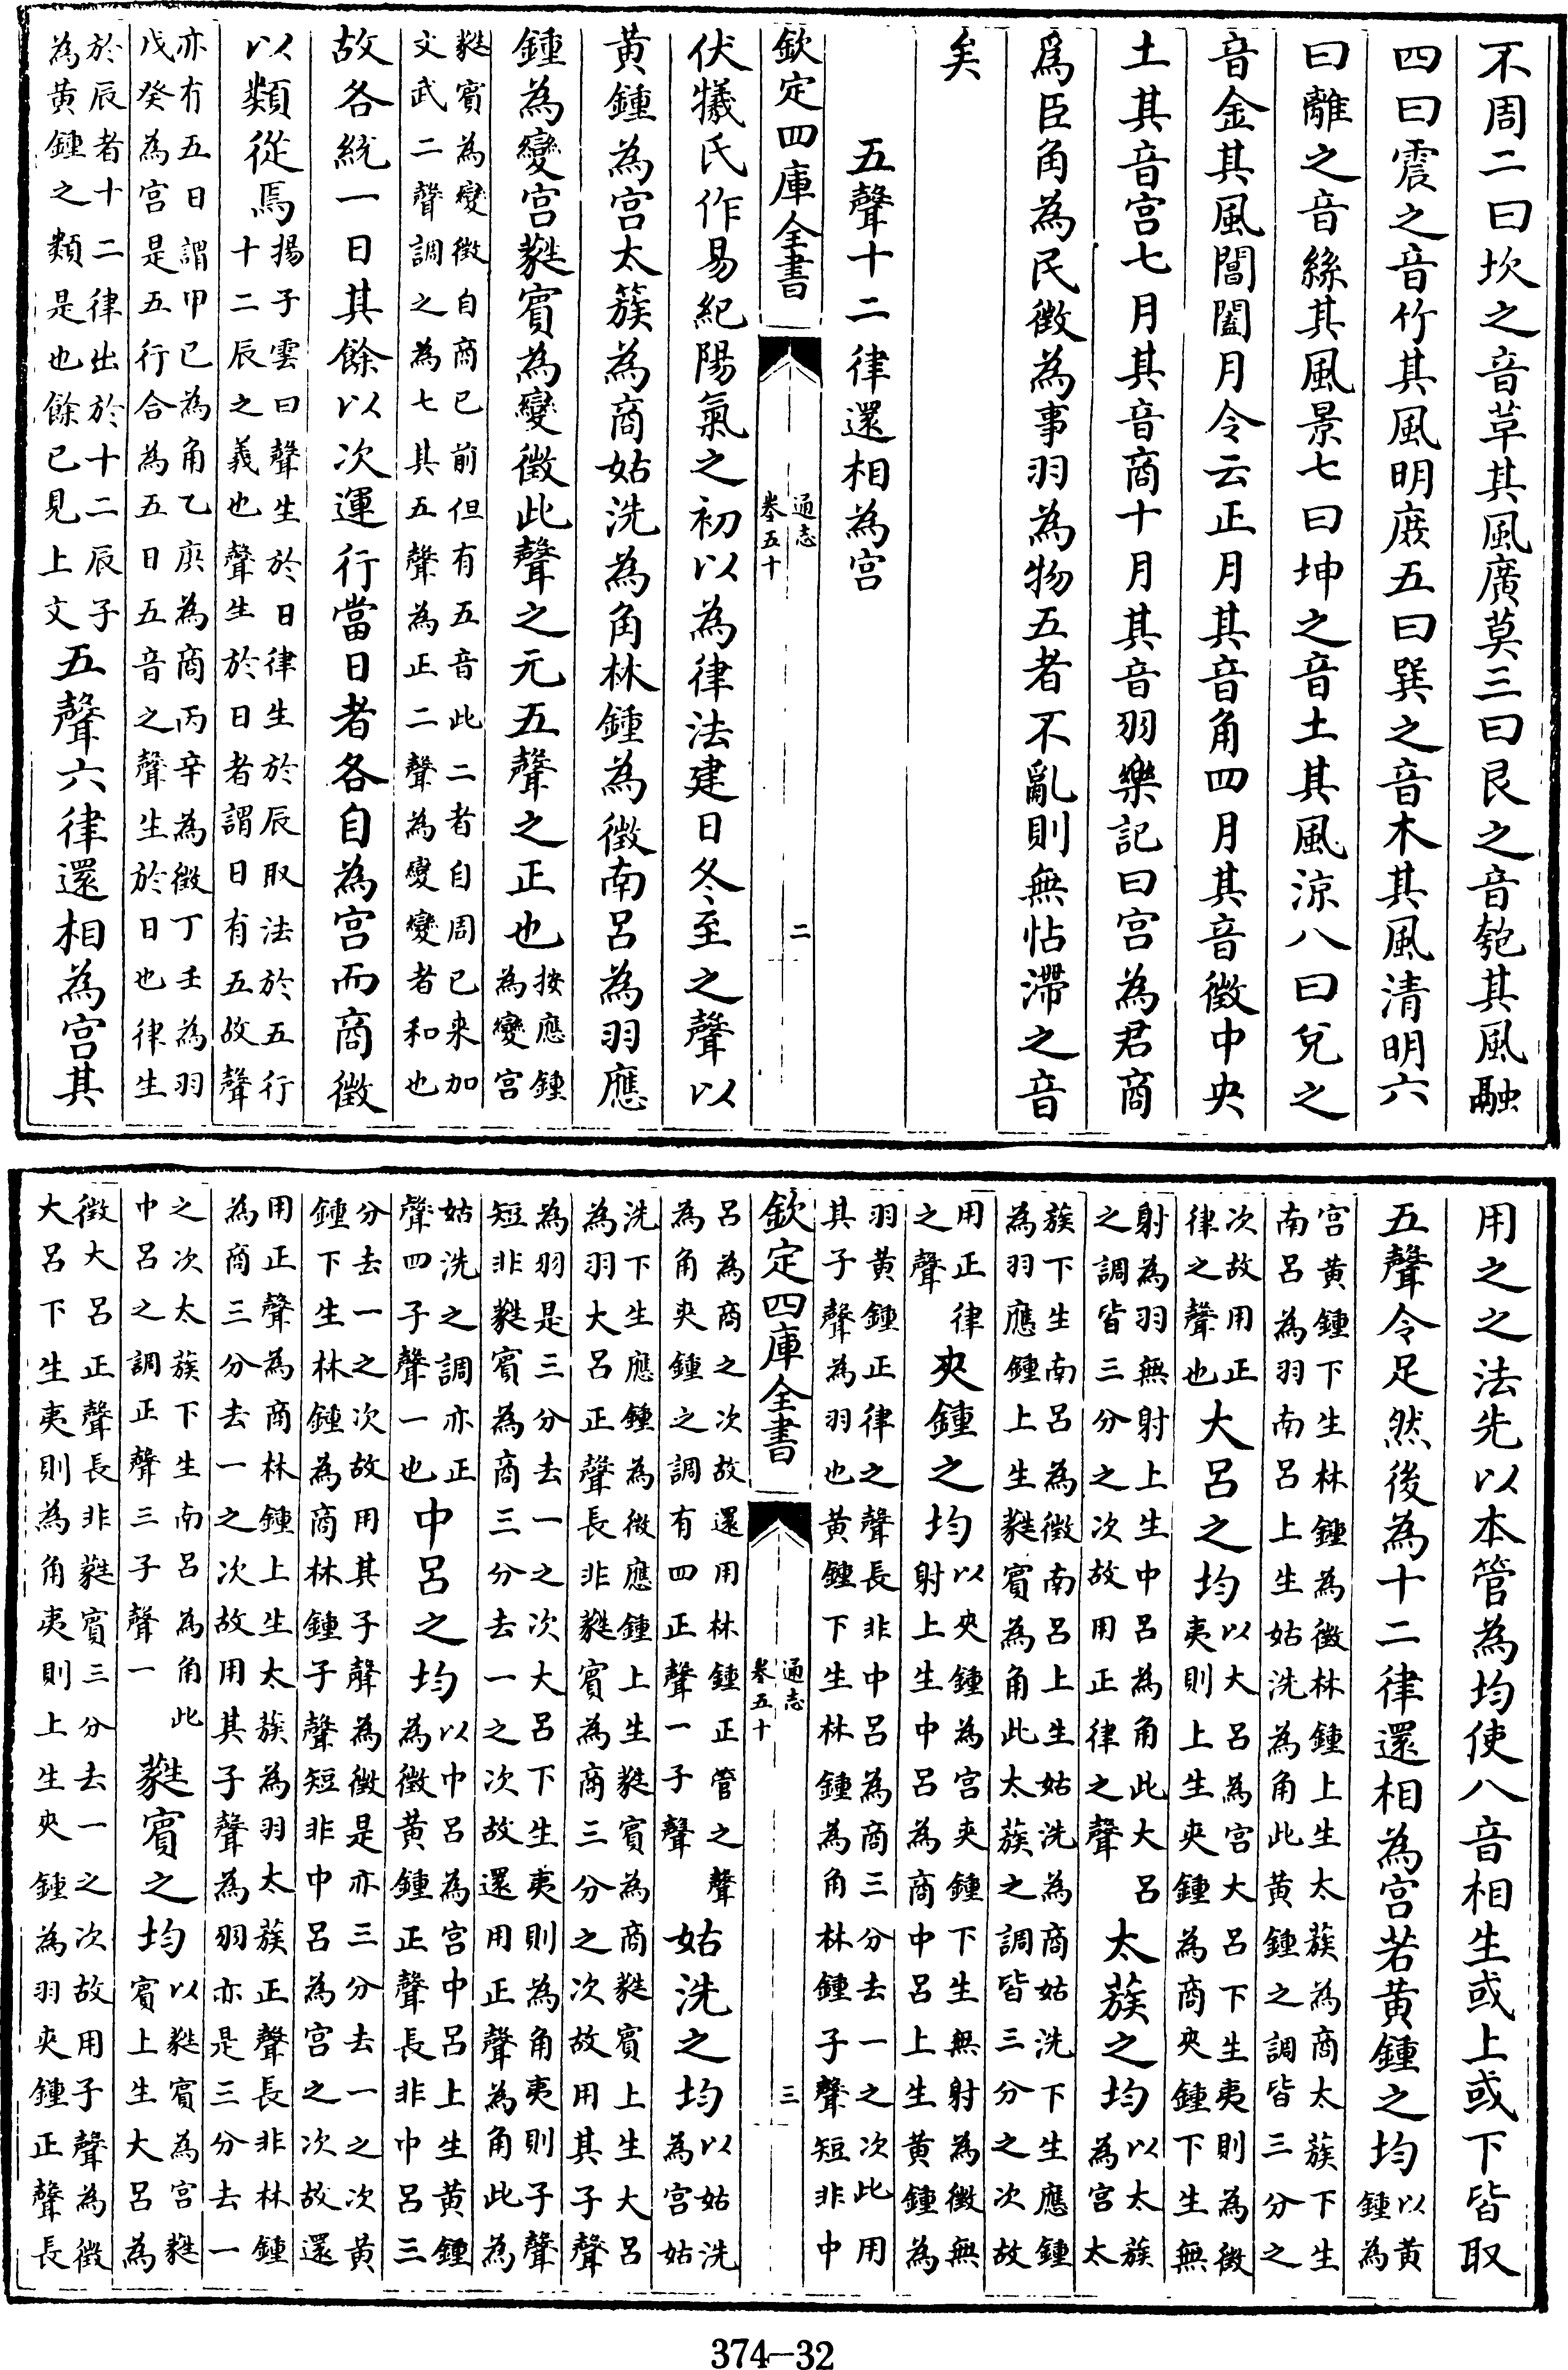 不周二曰坎之音草其風廣莫三曰艮之音匏其風融
四曰震之音竹其風明庶五曰巽之音木其風清明六
曰離之音絲其風景七曰坤之音土其風涼八曰兌之
音金其風閶闔月令云正月其音角四月其音徵中央
土其音宮七月其音商十月其音羽樂記曰宮為君商
爲臣角為民徵為事羽為物五者不亂則無怗滯之音
矣
五聲十二律還相為宮
欽定四庫全書
通志
卷五十
二
伏犧氏作易紀陽氣之初以為律法建日冬至之聲以
黄鍾為宮太蔟為商姑洗為角林鍾為徵南呂為羽應
鍾為變宮蕤賓為變徵此聲之元五聲之正也按應鍾
為變宮
蕤賓為變徵自商已前但有五音此二者自周已来加
文武二聲調之為七其五聲為正二聲為變變者和也
故各統一日其餘以次運行當日者各自為宮而商徵
以類從焉揚子雲曰聲生於日律生於辰取法於五行
十二辰之義也聲生於日者謂日有五故聲
亦有五日謂甲已為角乙庚為商丙辛為徵丁壬為羽
戊癸為宮是五行合為五日五音之聲生於日也律生
於辰者十二律出於十二辰子
為黄鍾之類是也餘已見上文五聲六律還相為宮其
用之之法先以本管為均使八音相生或上或下皆取
五聲令足然後為十二律還相為宮若黄鍾之均以黄
鍾為
宮黄鍾下生林鍾為徵林鍾上生太蔟為商太蔟下生
南呂為羽南呂上生姑洗為角此黄鍾之調皆三分之
次故用正
律之聲也大呂之均以大呂為宮大呂下生夷則為徵
夷則上生夾鍾為商夾鍾下生無
射為羽無射上生中呂為角此大呂
之調皆三分之次故用正律之聲太蔟之均以太蔟
為宮太
蔟下生南呂為徵南呂上生姑洗為商姑洗下生應鍾
為羽應鍾上生蕤賓為角此太蔟之調皆三分之次故
用正律
之聲夾鍾之均以夾鍾為宮夾鍾下生無射為徵無
射上生中呂為商中呂上生黄鍾為
羽黄鍾正律之聲長非中呂為商三分去一之次此用
其子聲為羽也黄鍾下生林鍾為角林鍾子聲短非中
欽定四庫全書
通志
卷五十
三
呂為商之次故還用林鍾正管之聲
為角夾鍾之調有四正聲一子聲姑洗之均以姑洗
為宮姑
洗下生應鍾為徵應鍾上生蕤賓為商蕤賓上生大呂
為羽大呂正聲長非蕤賓為商三分之次故用其子聲
為羽是三分去一之次大呂下生夷則為角夷則子聲
短非蕤賓為商三分去一之次故還用正聲為角此為
姑洗之調亦正
聲四子聲一也中呂之均以中呂為宮中呂上生黄鍾
為徵黄鍾正聲長非中呂三
分去一之次故用其子聲為徵是亦三分去一之次黄
鍾下生林鍾為商林鍾子聲短非中呂為宮之次故還
用正聲為商林鍾上生太蔟為羽太蔟正聲長非林鍾
為商三分去一之次故用其子聲為羽亦是三分去一
之次太蔟下生南呂為角此
中呂之調正聲三子聲一蕤賓之均以蕤賓為宮蕤
賓上生大呂為
徵大呂正聲長非蕤賓三分去一之次故用子聲為徵
大呂下生夷則為角夷則上生夾鍾為羽夾鍾正聲長
374-32